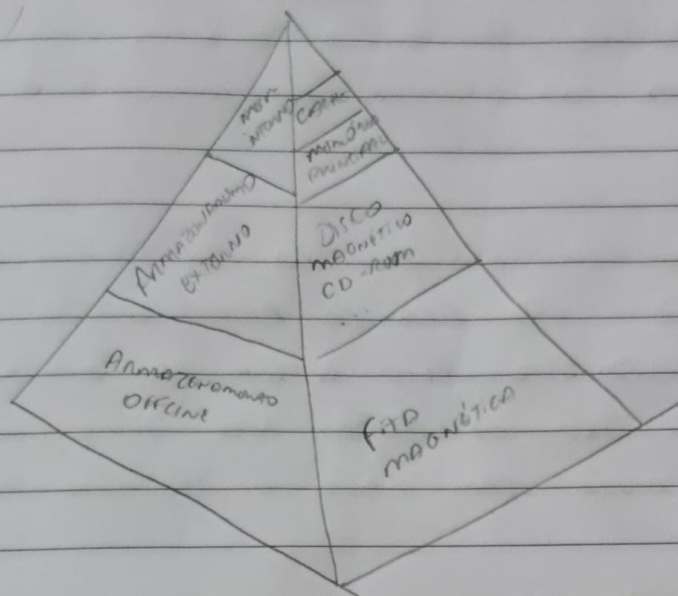 MEM.
INTERNO
CACHE
MEMÓRIA
PRINCIPAL
ARMAZENAMENTO
EXTERNO
DISCO
MAGNÉTICO
CD-ROM
...
ARMAZENAMENTO
OFFLINE
FITA
MAGNÉTICA